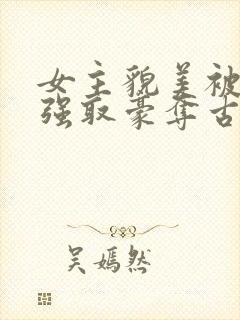 女主貌美被
强取豪夺古
吴嫣然